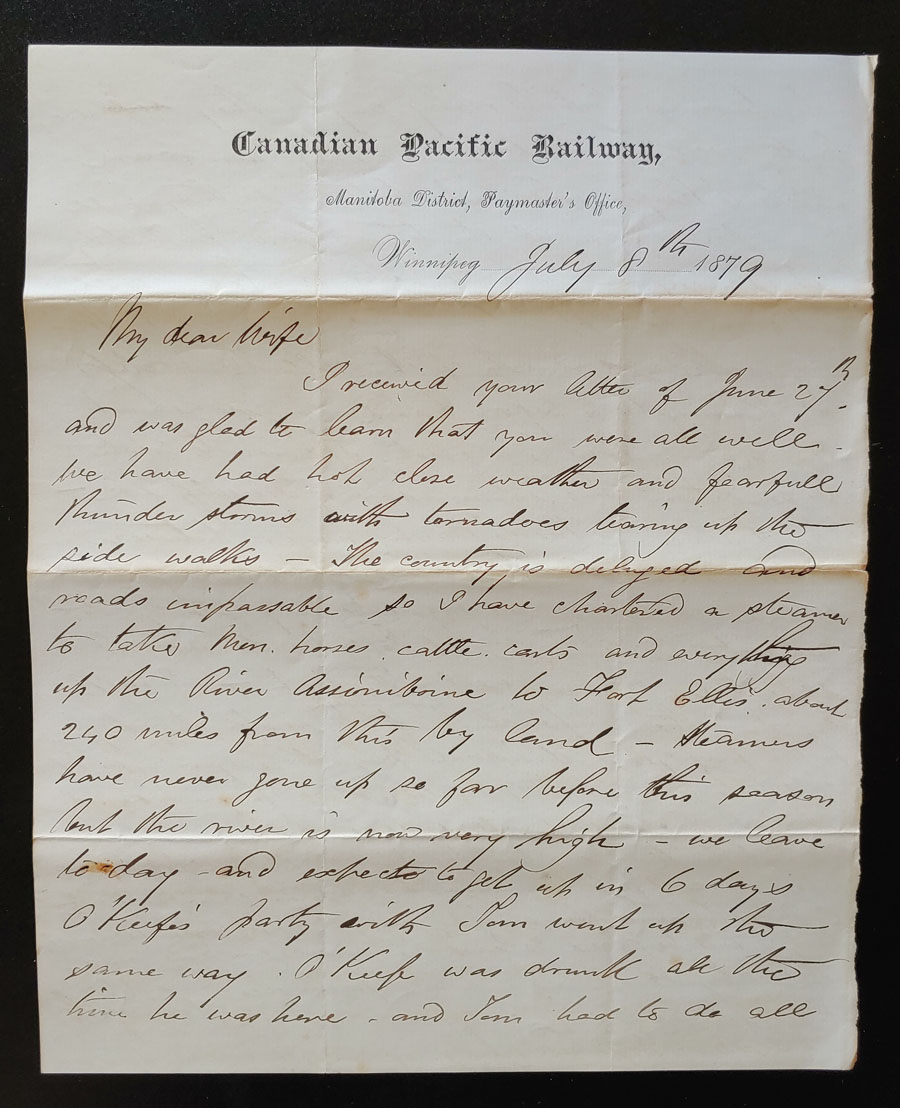 Canadian Pacific Railway,
Manitoba District, Paymaster's Office,
Winnipeg July 8th 1879
My dear Wife
I received your letter of June 27th.
and was glad to learn that you were all well -
we have had hot close weather and fearfull
thunder storms with tornadoes tearing up the
side walks - The country is deluged and
roads impassable so I have chartered a steamer
to take Men. horses. cattle. carts and everything
up the River Assiniboine to Fort Ellis. about
240 miles from this by land - Steamers
have never gone up so far before this season
but the river is now very high - we leave
to day - and expect to get up in 6 days
O'Keefe's party with Tom went up the
same way. O'Keefe was drunk all the
time he was here - and Tom had to do all